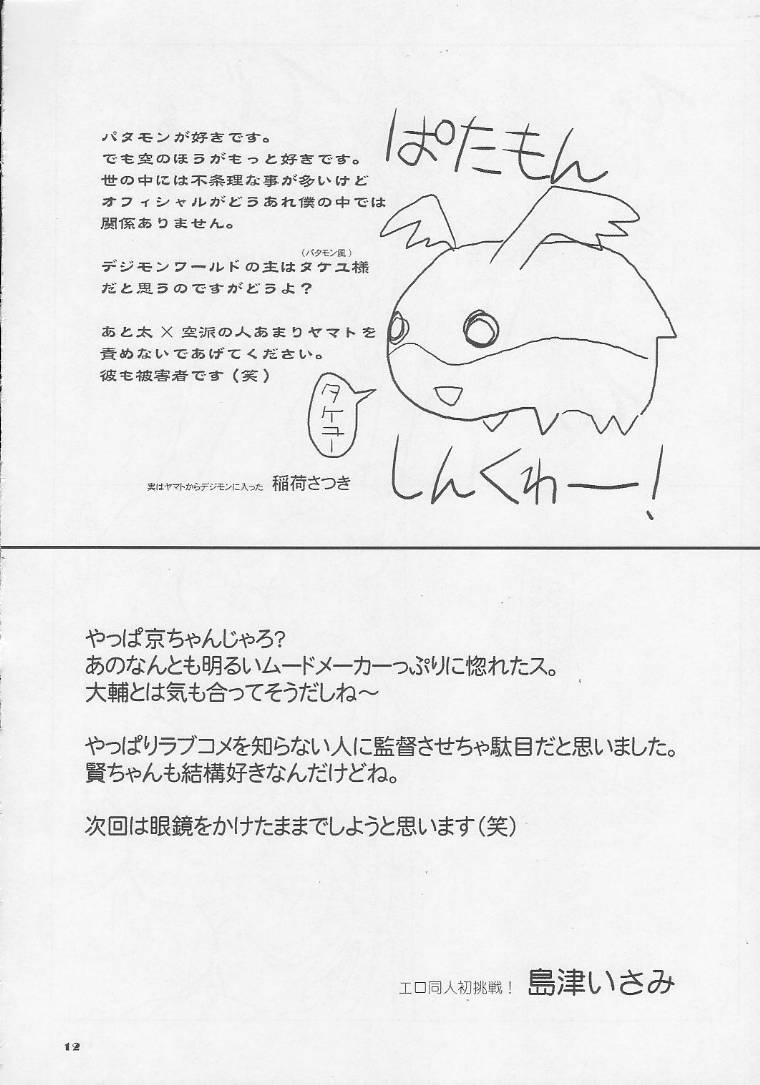 パタモンが好きです。
でも空のほうがもっと好きです。
世の中には不条理な事が多いけど
オフィシャルがどうあれ僕の中では
関係ありません。
(パタモン風)
デジモンワールドの主はタケユ様
だと思うのですがどうよ?
あと太×空派の人あまりヤマトを
責めないであげてください。
彼も被害者です(笑)
ぱたもん
タケユー
しんくわー!
実はヤマトからデジモンに入った 稲荷さつき
やっぱ京ちゃんじゃろ?
あのなんとも明るいムードメーカーっぷりに惚れたス。
大輔とは気も合ってそうだしね～
やっぱりラブコメを知らない人に監督させちゃ駄目だと思いました。
賢ちゃんも結構好きなんだけどね。
次回は眼鏡をかけたままでしようと思います(笑)
エロ同人初挑戦! 島津いさみ
12